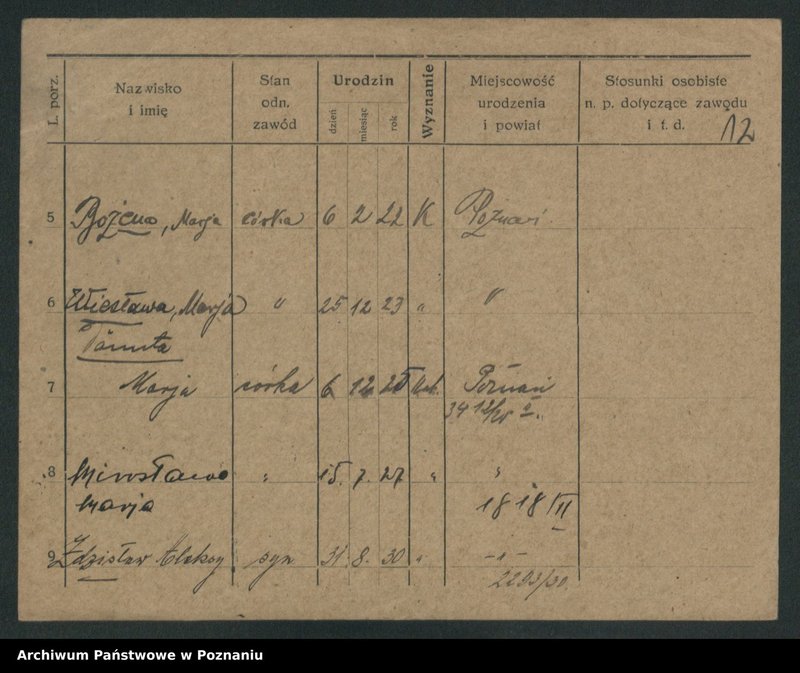 L. porz.
Nazwisko
i imię
Stan
odn.
zawód
Urodzin
dzień
miesiąc
rok
Wyznanie
Miejscowość
urodzenia
i powiat
Stosunki osobiste
n. p. dotyczące zawodu
i t. d.
12
5 Bożena, Marja córka 6 2 22 K Poznań
6 Wiesława, Marja " 25 12 23 " "
Danuta
7 Marja córka 6 12 25 Poznań
8 Mirosława " 15. 7. 27 " "
Marja
18 18/VII
9 Zdzisław Aleksy syn 31 8. 30 " -"-
2293/30.
Archiwum Państwowe w Poznaniu